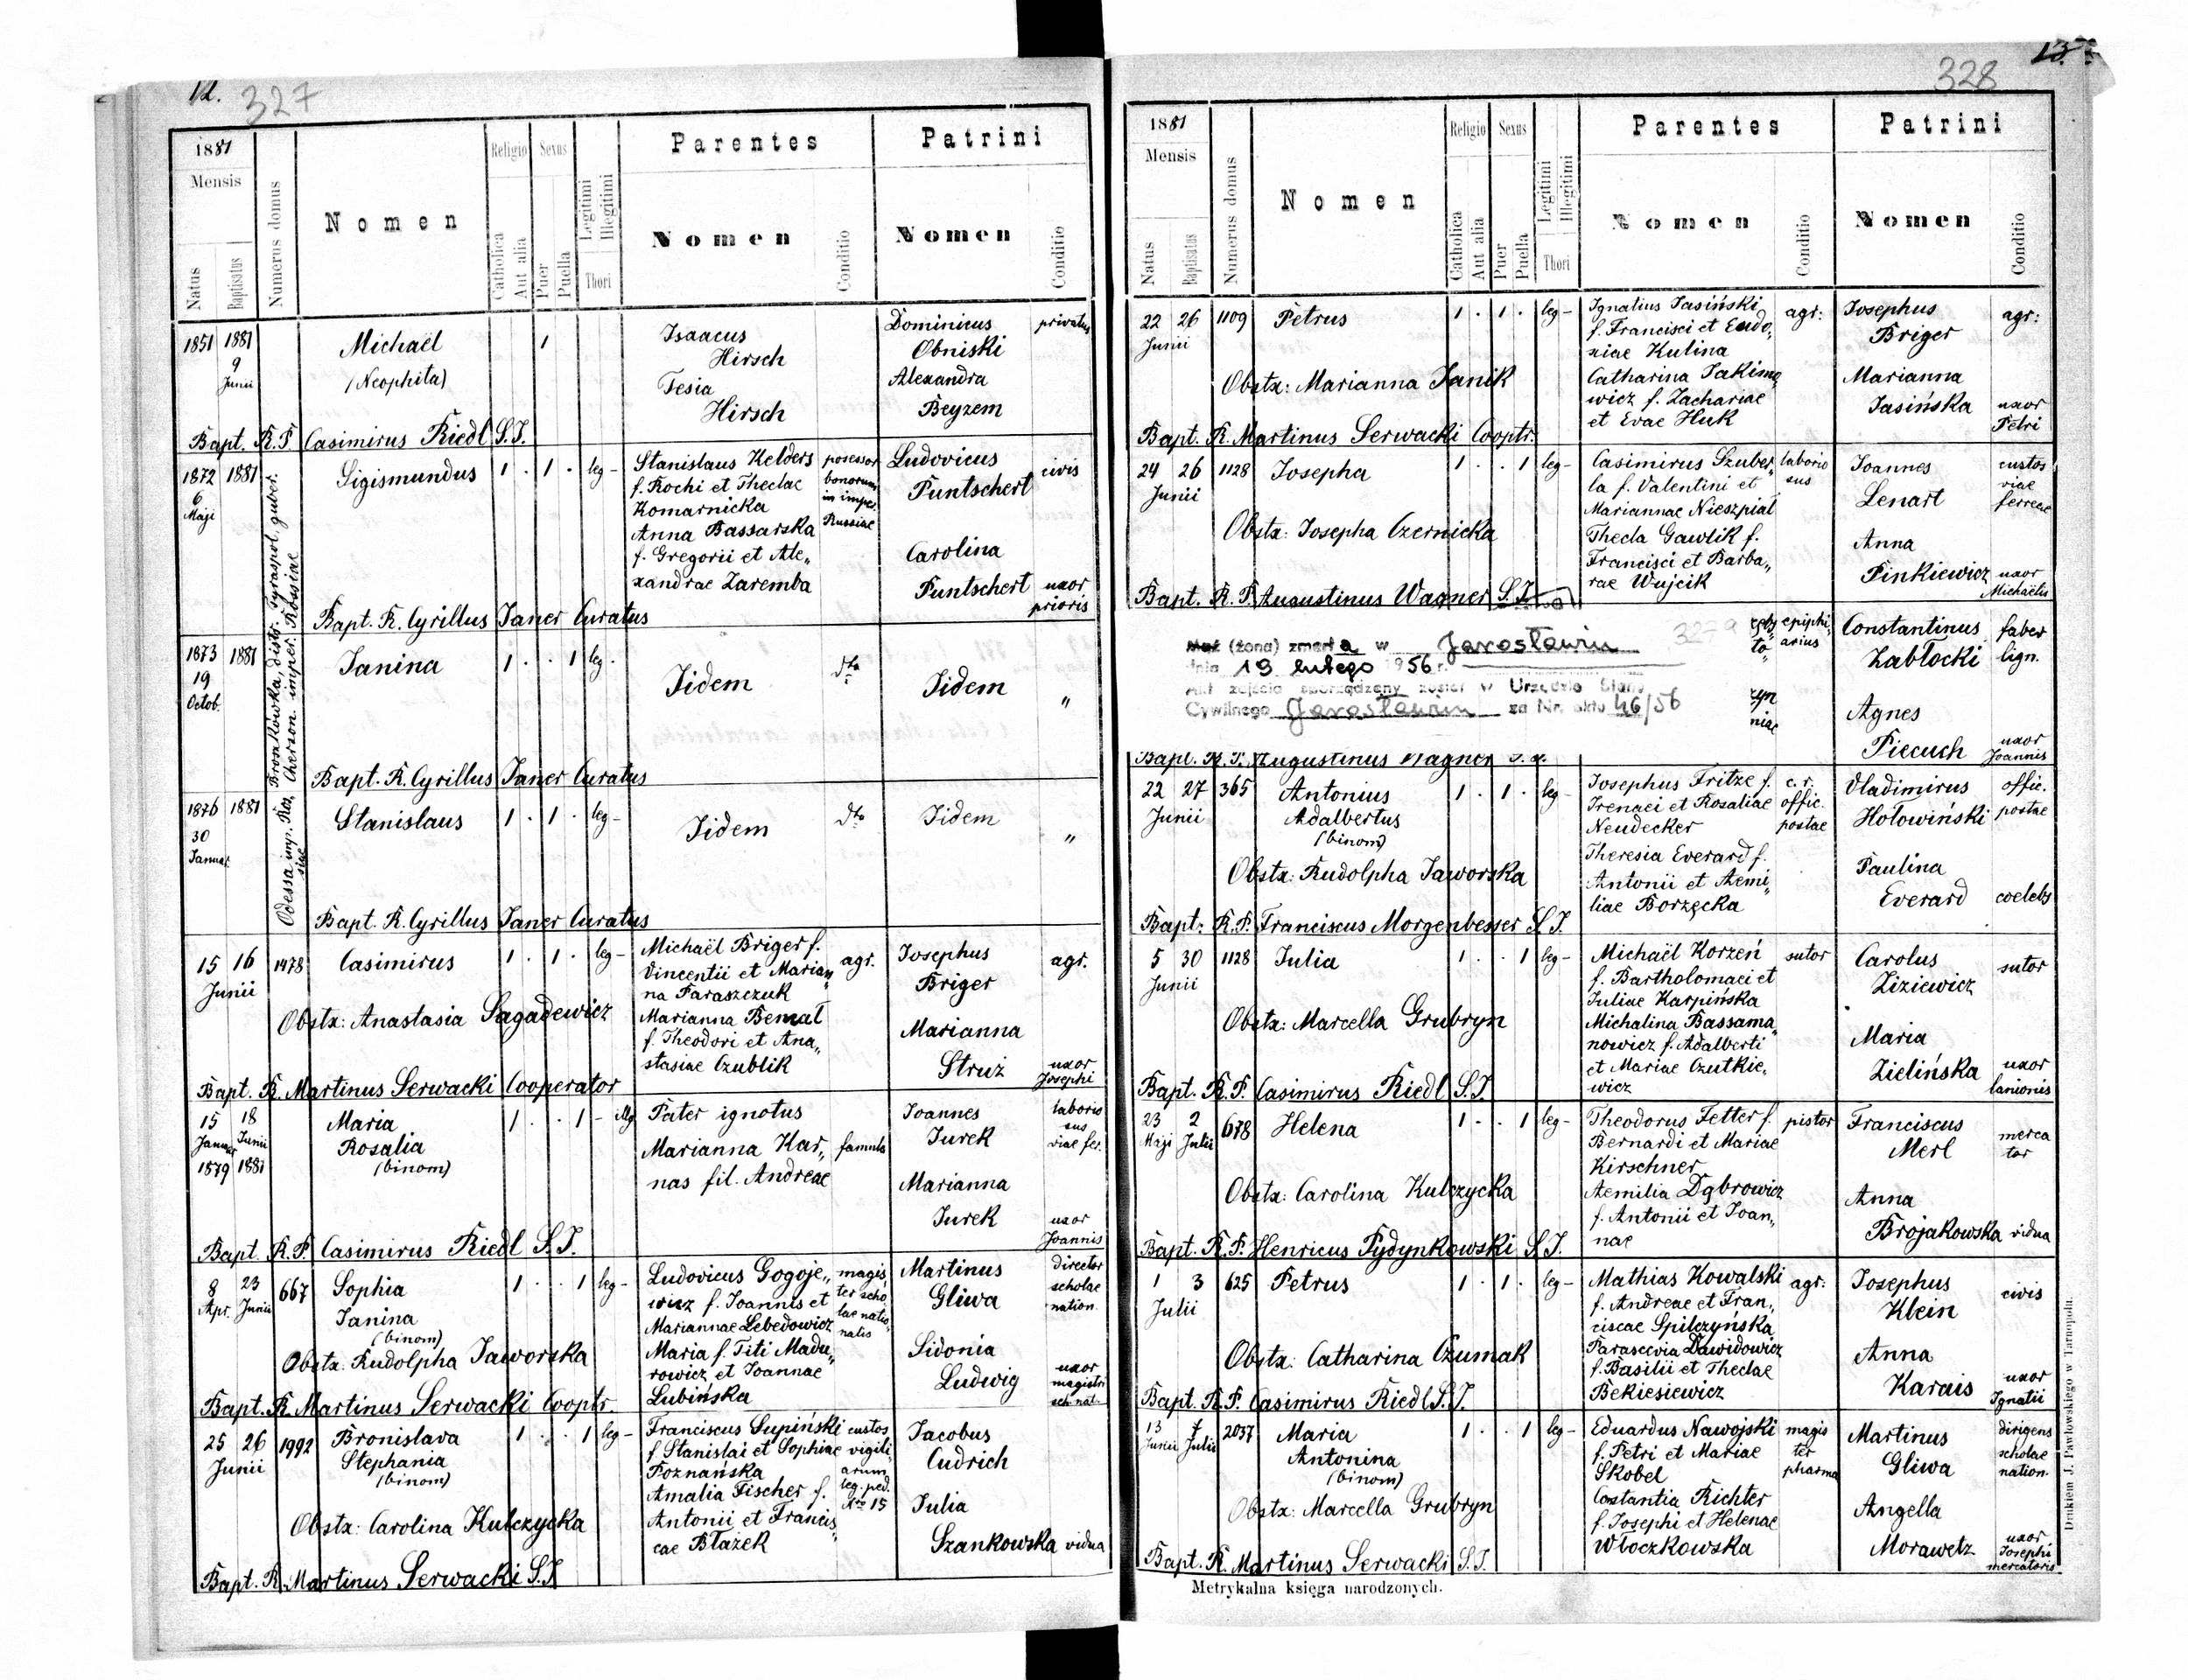 12. 327
1881
Mensis
Natus
Baptisatus
Numerus domus
Nomen
Religio
Catholica
Aut alia
Sexus
Puer
Puella
Legitimi
Illegitimi
Thori
Parentes
Nomen
Conditio
Patrini
Nomen
Conditio
1851 1881
9
Junii
Michaël
(Neophita)
1
Isaacus
Hirsch
Tesia
Hirsch
Dominicus privatus
Obniski
Alexandra
Beyzem
Bapt. R.P. Casimirus Riedl S.J.
1872 1881
6
Maji
Broszkówka, distr. Tyraspol, guber.
Cherson. imper. Rossiae
Sigismundus 1 . 1 . leg-
Stanislaus Kelders posessor
f. Rochi et Theclae bonorum
Komarnicka in imper.
Anna Bassarska Russiae
f. Gregorii et Ale„
xandrae Zaremba
Ludovicus civis
Puntschert
Carolina
Puntschert uxor
prioris
Bapt. R. Cyrillus Janer Curatus
1873 1881
19
Octob.
Janina 1 . . 1 leg.
Iidem dto
Iidem „
Bapt. R. Cyrillus Janer Curatus
1876 1881
30
Januar.
Odessa imp. Ros„
siae
Stanislaus 1 . 1 . leg-
Iidem dto
Iidem „
Bapt. R. Cyrillus Janer Curatus
15 16 1478 Casimirus 1 . 1 . leg-
Junii
Obstx: Anastasia Sagadewicz
Michaël Briger f. agr.
Vincentii et Marian„
na Paraszczuk
Marianna Bemal
f. Theodori et Ana„
stasiae Czublik
Josephus agr.
Briger
Marianna
Struż uxor
Josephi
Bapt. R. Martinus Serwacki Cooperator
15 18
Januar Junii
1879 1881
Maria 1 . . 1 - illeg
Rosalia
(binom)
Pater ignotus
Marianna Kar„ famula
nas fil. Andreae
Joannes laborio
Jurek sus
viae fer.
Marianna
Jurek uxor
Joannis
Bapt. R.P. Casimirus Riedl S.J.
8 23 667 Sophia 1 . . 1 leg-
Apr. Junii
Janina
(binom)
Obstx: Rudolpha Jaworska
Ludovicus Gogoje„ magis
wicz f. Joannis et ter scho
Mariannae Lebedowicz lae natio„
nalis
Maria f. Titi Madu„
rowicz et Joannae
Lubińska
Martinus director
Gliwa scholae
nation.
Sidonia
Ludwig uxor
magistri
sch. nat.
Bapt. R. Martinus Serwacki Cooptr.
25 26 1992 Bronislava 1 . . 1 leg-
Junii
Stephania
(binom)
Obstx: Carolina Kulczycka
Franciscus Supiński custos
f. Stanislai et Sophiae vigili
Poznańska arum
Amalia Fischer f. leg. ped.
Nro 15
Antonii et Francis„
cae Błażek
Jacobus
Cudrich
Julia
Szankowska vidua
Bapt. R. Martinus Serwacki S.J.
328 13.
1881
Mensis
Natus
Baptisatus
Numerus domus
Nomen
Religio
Catholica
Aut alia
Sexus
Puer
Puella
Legitimi
Illegitimi
Thori
Parentes
Nomen
Conditio
Patrini
Nomen
Conditio
22 26 1109 Petrus 1 . 1 . leg-
Junii
Obstx: Marianna Janik
Ignatius Jasiński agr:
f. Francisci et Eudo„
xiae Kulina
Catharina Jakimo„
wicz f. Zachariae
et Evae Huk
Josephus agr:
Briger
Marianna
Jasińska uxor
Petri
Bapt. R. Martinus Serwacki Cooptr.
24 26 1128 Josepha 1 . . 1 leg-
Junii
Obstx: Josepha Czernicka
Casimirus Szuber„ laborio
la f. Valentini et sus
Mariannae Nieszpiał
Thecla Gawlik f.
Francisci et Barba„
rae Wujcik
Joannes custos
Lenart viae
ferreae
Anna
Pinkiewicz uxor
Michaëlis
Bapt. R. P. Augustinus Wagner S.J.
Mąż (żona) zmarła w Jarosławiu
dnia 19 lutego 1956 r.
Akt zejścia sporządzony został w Urzędzie Stanu
Cywilnego Jarosławiu za Nr. aktu 46/56
epiphi„
arius
Constantinus faber
Zabłocki lign.
Agnes
Piecuch uxor
Joannis
Bapt. R. P. Augustinus Wagner S.J.
22 27 365 Antonius 1 . 1 . leg-
Junii
Adalbertus
(binom)
Obstx: Rudolpha Jaworska
Josephus Fritze f. c. r.
Irenaei et Rosaliae offic.
Neudecker postae
Theresia Everard f.
Antonii et Aemi„
liae Borzęcka
Vladimirus offic.
Hołowiński postae
Paulina
Everard coelebs
Bapt: R.P. Franciscus Morgenbesser S.J.
5 30 1128 Julia 1 . . 1 leg-
Junii
Obstx: Marcella Grubryn
Michaël Korzeń sutor
f. Bartholomaei et
Juliae Karpińska
Michalina Bassama„
nowicz f. Adalberti
et Mariae Czutkie„
wicz
Carolus sutor
Ziziewicz
Maria
Zielińska uxor
lanionis
Bapt. R. P. Casimirus Riedl S.J.
23 2 678 Helena 1 . . 1 leg-
Maji Julii
Obstx: Carolina Kulczycka
Theodorus Fetter f. pistor
Bernardi et Mariae
Kirschner
Aemilia Dąbrowicz
f. Antonii et Joan„
nae
Franciscus merca
Merl tor
Anna
Brojakowska vidua
Bapt. R. P. Henricus Pydynkowski S.J.
1 3 625 Petrus 1 . 1 . leg-
Julii
Obstx: Catharina Czumak
Mathias Kowalski agr:
f. Andreae et Fran„
ciscae Spilczyńska
Parascevia Dawidowicz
f. Basilii et Theclae
Bekiesiewicz
Josephus civis
Klein
Anna
Karais uxor
Ignatii
Bapt. R. P. Casimirus Riedl S.J.
13 7 2037 Maria 1 . . 1 leg-
Junii Julii
Antonina
(binom)
Obstx: Marcella Grubryn
Eduardus Nawojski magis
f. Petri et Mariae ter
Skobel pharma
Costantia Richter
f. Josephi et Helenae
Włoczkowska
Martinus dirigens
Gliwa scholae
nation.
Angella
Morawetz uxor
Josephi
mercatoris
Bapt. R. Martinus Serwacki S.J.
Metrykalna księga narodzonych.
Drukiem J. Pawłowskiego w Tarnopolu.